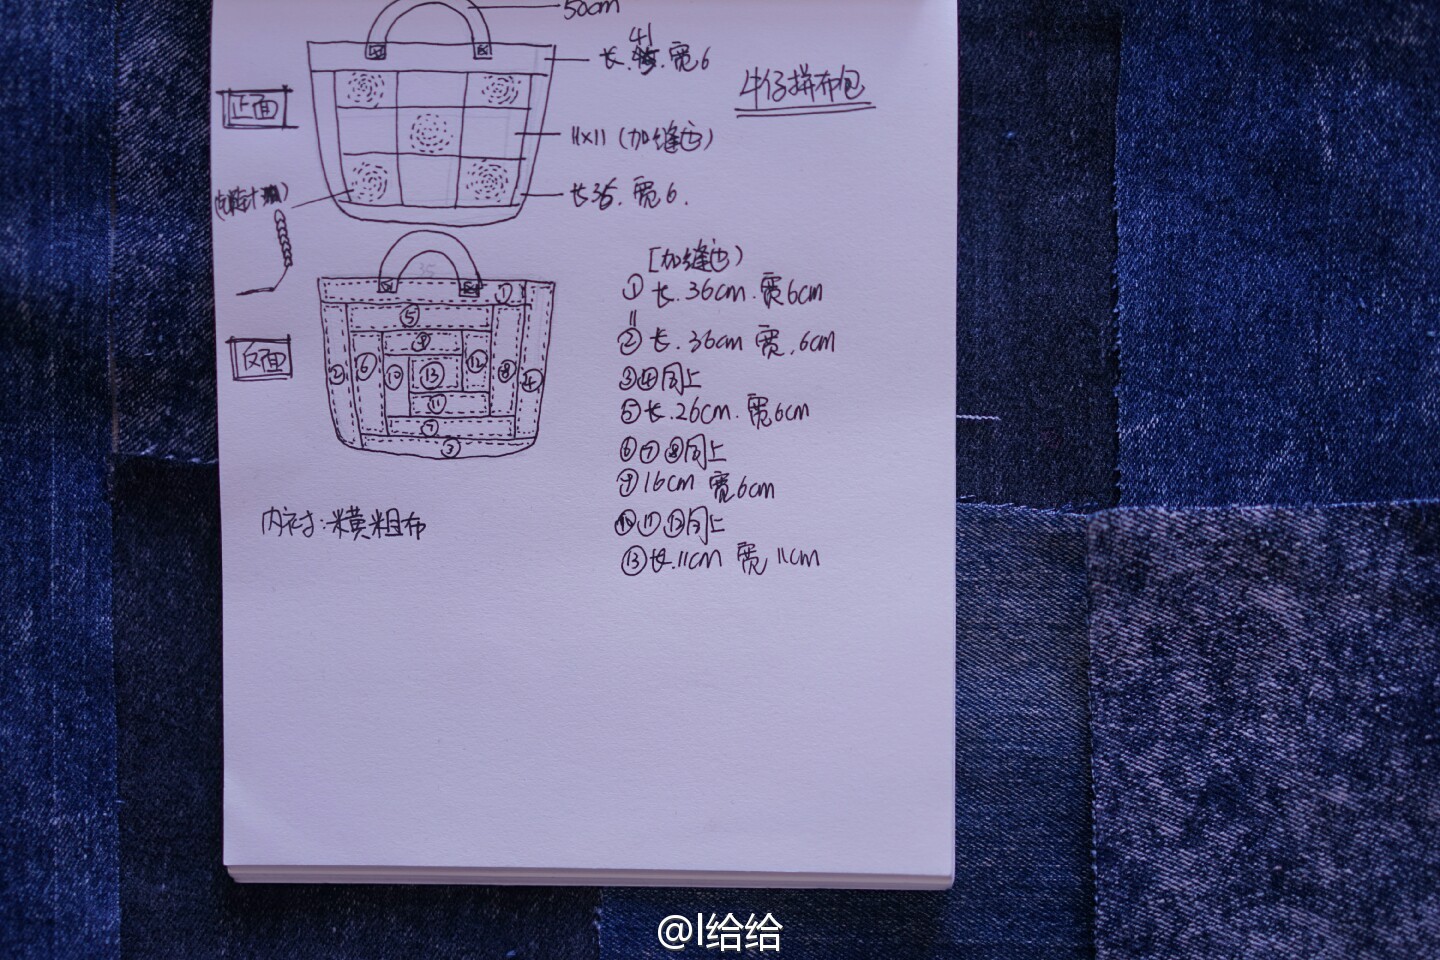 50cm
41
长. 宽6
牛仔拼布包
正面
11×11 (加缝边)
长35. 宽6.
[加缝边)
① 长.36cm.宽6cm
=
② 长.36cm 宽.6cm
③④同上
⑤长.26cm.宽6cm
⑥⑦⑧同上
⑨16cm 宽6cm
⑩⑪⑫同上
⑬长.11cm 宽11cm
35
①
⑤
⑨
② ⑥ ⑩ ⑬ ⑫ ⑧ ④
⑪
⑦
③
反面
内衬:横粗布
@l给给